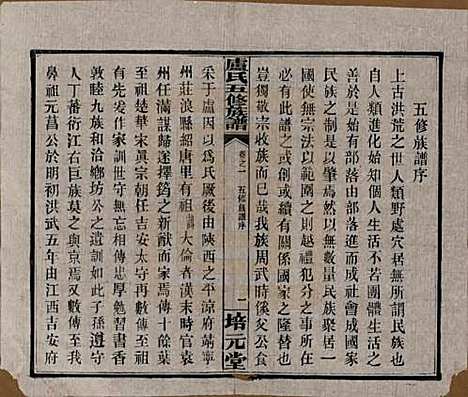 五修族譜序
上古洪荒之世人類野處穴居無所謂民族也
自人類進化始知個人生活不若團體生活之
善於是集無數的部落進而成社會成國家國
之與民猶然以無數量民族聚居一
國使無宗法以約則越禮犯分之事所在
必有此譜之或創或續有關係國家之隆替也
豈獨敬宗收族而已哉我族周武時僖父公食
盧氏五修族譜
卷之一
五修譜序
一
培元堂
采于盧因以為氏厥後由陝西之平涼府靖寧
州莊浪縣紹唐里有祖諱大倫者漢末時官袁
州任滿謀歸遂擇筠之新猷而家焉傳十餘葉
至祖楚華宋真宗朝任吉安太守再數傳至祖
有先發作家訓世守無忘前後彬彬勉習書香
敦睦九族和洽鄉坊公之遺訓如此子孫遵守
人丁蕃衍江右巨族莫之與京焉又數傳而
鼻祖元菖公於明初洪武五年由江西吉安府